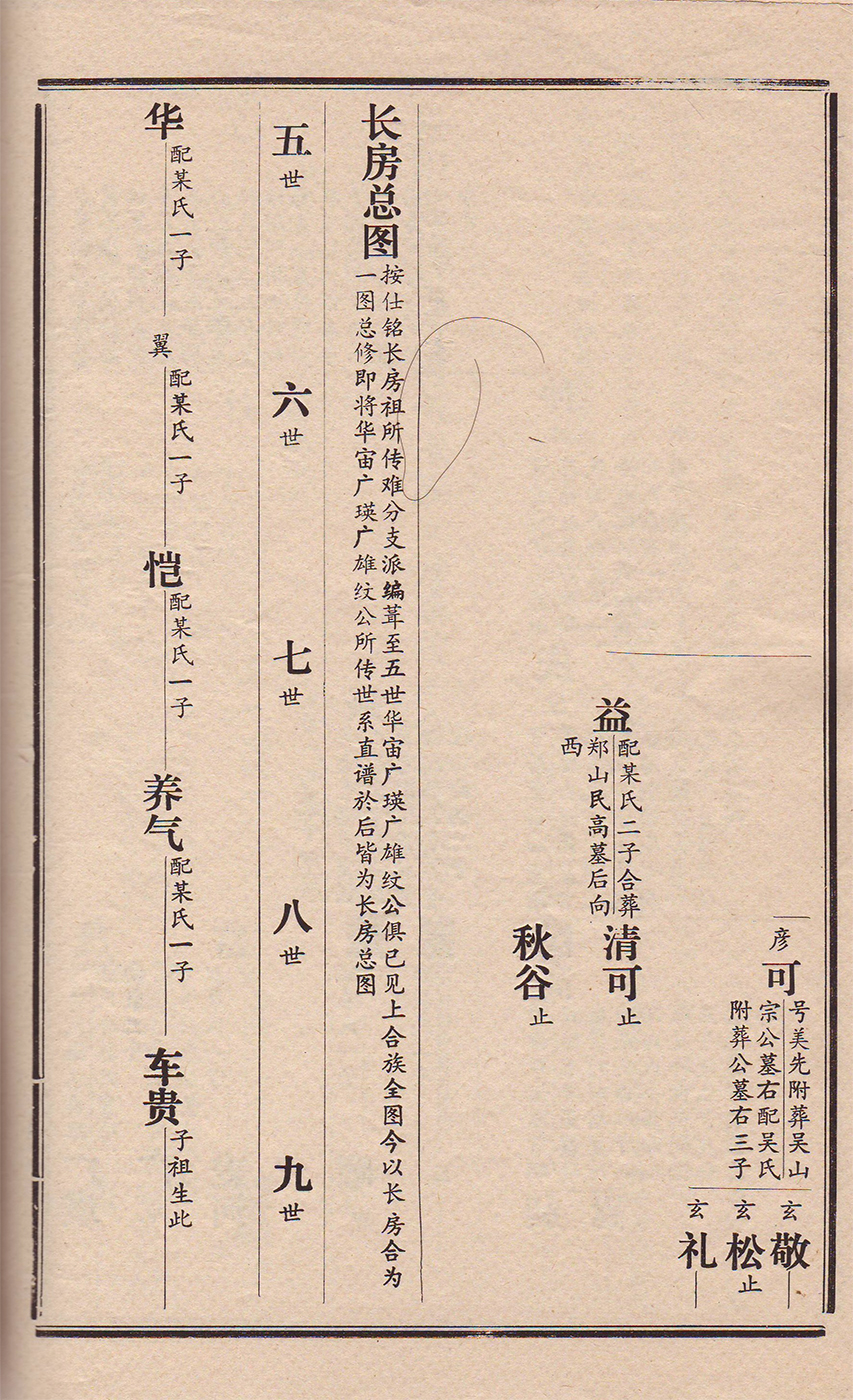 彦可
号美先附葬吴山
宗公墓右配吴氏
附葬公墓右三子
玄敬
玄松止
玄礼
益
配某氏二子合葬
郑山民高墓后向
西
清可止
秋谷止
长房总图
按仕铭长房祖所传难分支派编葺至五世华宙广瑛广雄纹公俱已见上合族全图今以长房合为
一图总修即将华宙广瑛广雄纹公所传世系直谱於后皆为长房总图
五世
六世
七世
八世
九世
华
配某氏一子
翼
配某氏一子
恺
配某氏一子
养气
配某氏一子
车贵
子祖生此